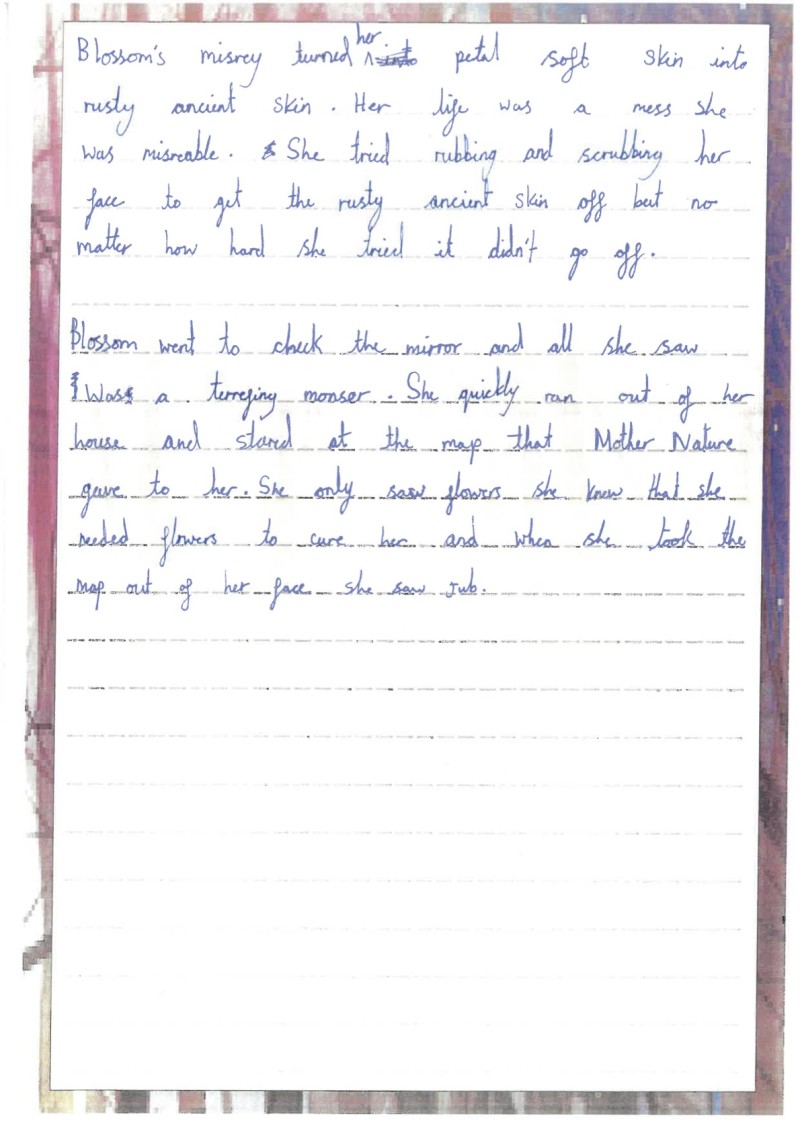 Blossom's misrey turned her petal soft skin into
rusty ancient skin. Her life was a mess she
was misreable. She tried rubbing and scrubbing her
face to get the rusty ancient skin off but no
matter how hard she tried it didn't go off.
Blossom went to check the mirror and all she saw
was a terrefing monser. She quickly ran out of her
house and stared at the map that Mother Nature
gave to her. She only saw flowers she knew that she
needed flowers to cure her and when she took the
map out of her face she saw Jub.